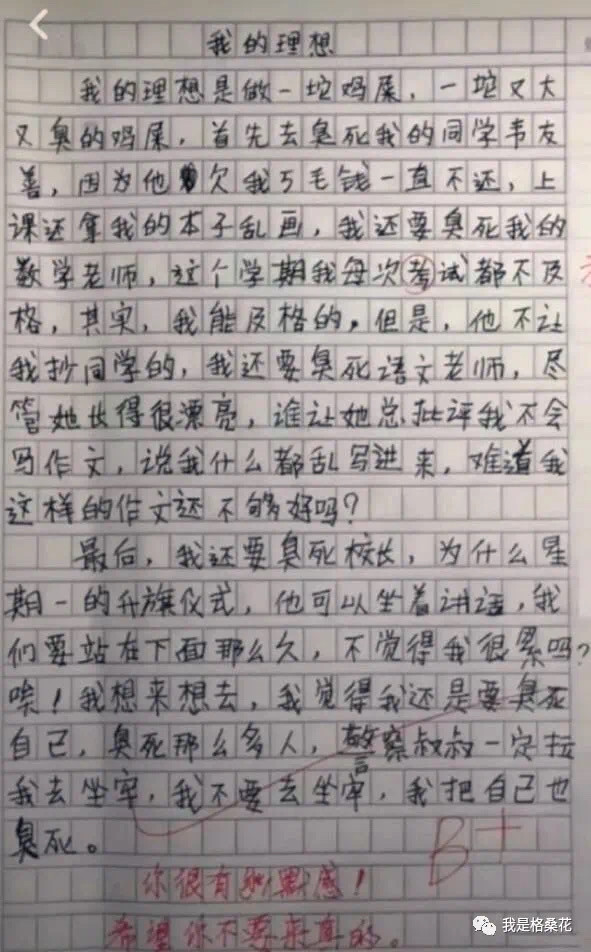 我的理想
我的理想是做一坨鸡屎，一坨又大
又臭的鸡屎，首先去臭死我的同学韦友
善，因为他欠我5毛钱一直不还，上
课还拿我的本子乱画，我还要臭死我的
数学老师，这个学期我每次考试都不及
格，其实，我能及格的，但是，他不让
我抄同学的，我还要臭死语文老师，尽
管她长得很漂亮，谁让她总批评我不会
写作文，说我什么都乱写进来，难道我
这样的作文还不够好吗？
最后，我还要臭死校长，为什么星
期一的升旗仪式，他可以坐着讲话，我
们要站在下面那么久，不觉得我很累吗？
唉！我想来想去，我觉得我还是要臭死
自己，臭死那么多人，警察叔叔一定拉
我去坐牢，我不要去坐牢，我把自己也
臭死。
B+
你很有幽默感！
希望你不要来真的。
我是格桑花